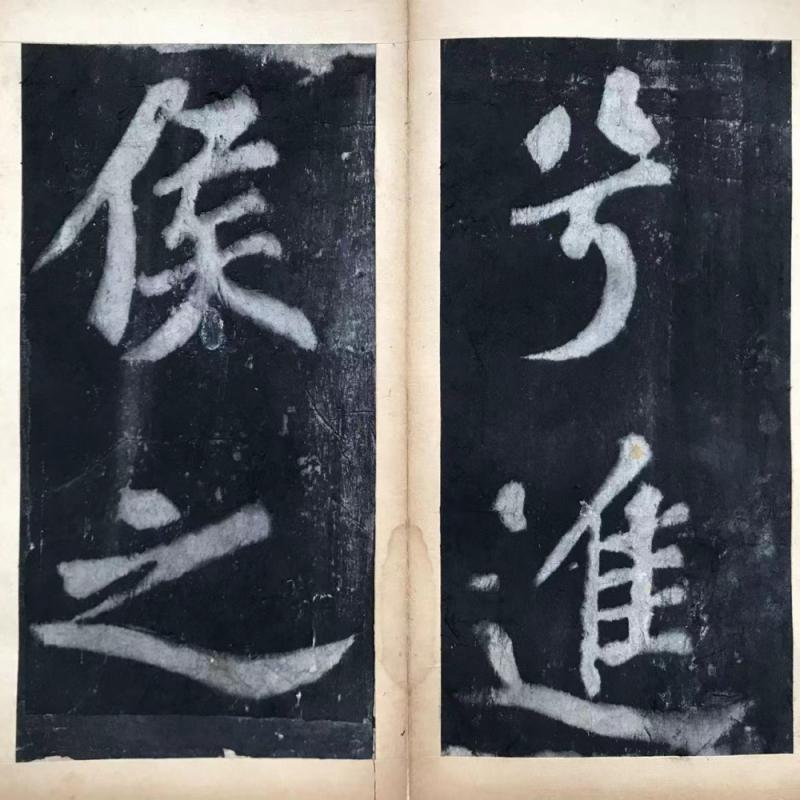 兮進
侯之